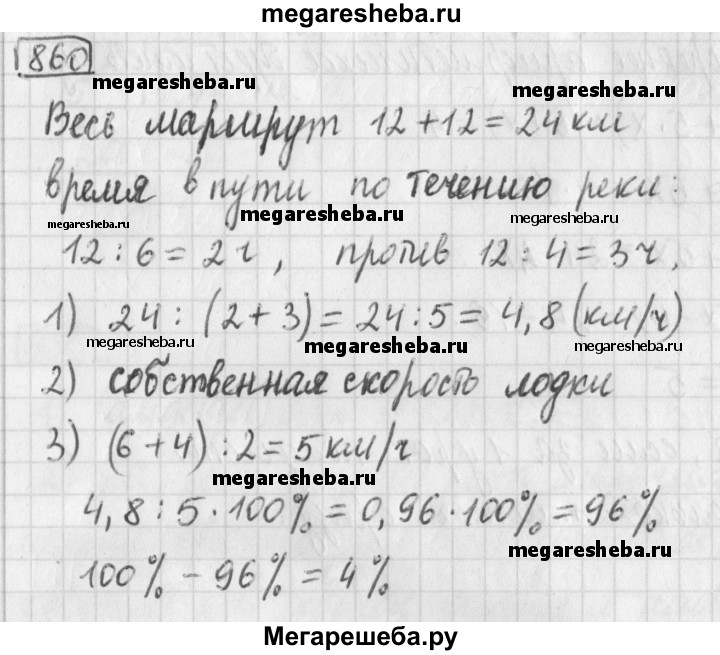 megaresheba.ru
860
megaresheba.ru
megaresheba.ru
Весь маршрут 12+12=24 км
время в пути по течению реки:
megaresheba.ru
megaresheba.ru
megaresheba.ru
12:6=2 ч, против 12:4=3 ч.
1) 24:(2+3)=24:5=4,8(км/ч)
megaresheba.ru
megaresheba.ru
megaresheba.ru
2) собственная скорость лодки
3) (6+4):2=5 км/ч
megaresheba.ru
4,8:5·100%=0,96·100%=96%
megaresheba.ru
100%-96%=4%
Мегарешеба.ру